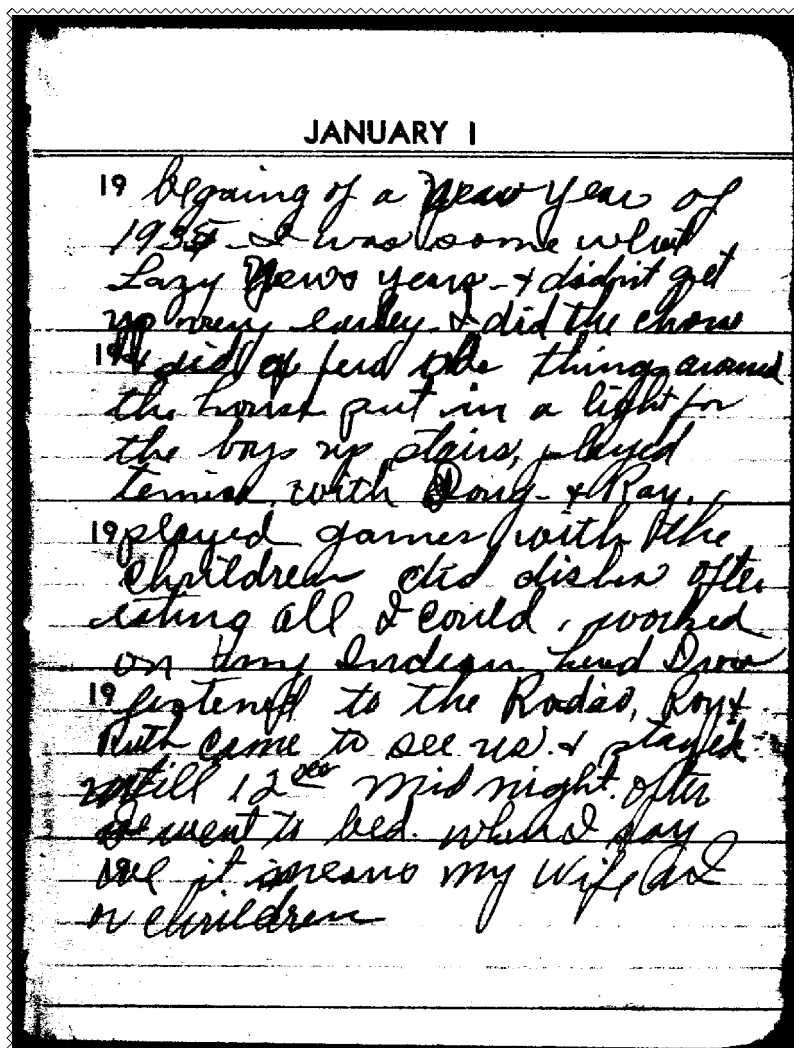 JANUARY 1
19 begaing of a New Year of
1935 - I was some what
Lazy News years - & didn't get
up very earley. I did the chors
19 & did a few odd things around
the house put in a light for
the boys up stairs, played
tennis, with Doug - & Ray.
19 played games with the
Chrildren did dishes after
eating all I could, worked
on my Indian head Draw
19 listened to the Radio, Roy &
Ruth came to see us. & stayed
untill 12 mid night. after
we went to bed. when I say
19 we it means my wife and I
or chrildren